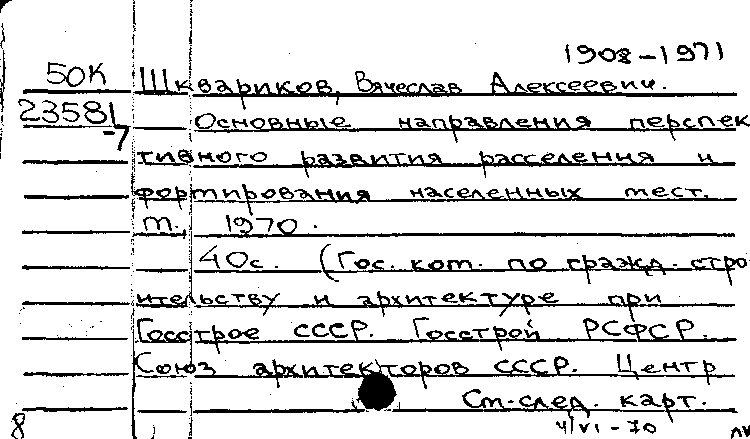 1908-1971
50К Шквариков, Вячеслав Алексеевич.
23581-7 Основные направления перспек
тивного развития расселения и
формирования населенных мест.
М., 1970.
40с. (Гос. ком. по гражд. стро
ительству и архитектуре при
Госстрое СССР. Госстрой РСФСР.
Союз архитекторов СССР. Центр
См. след. карт.
8 4/VI-70